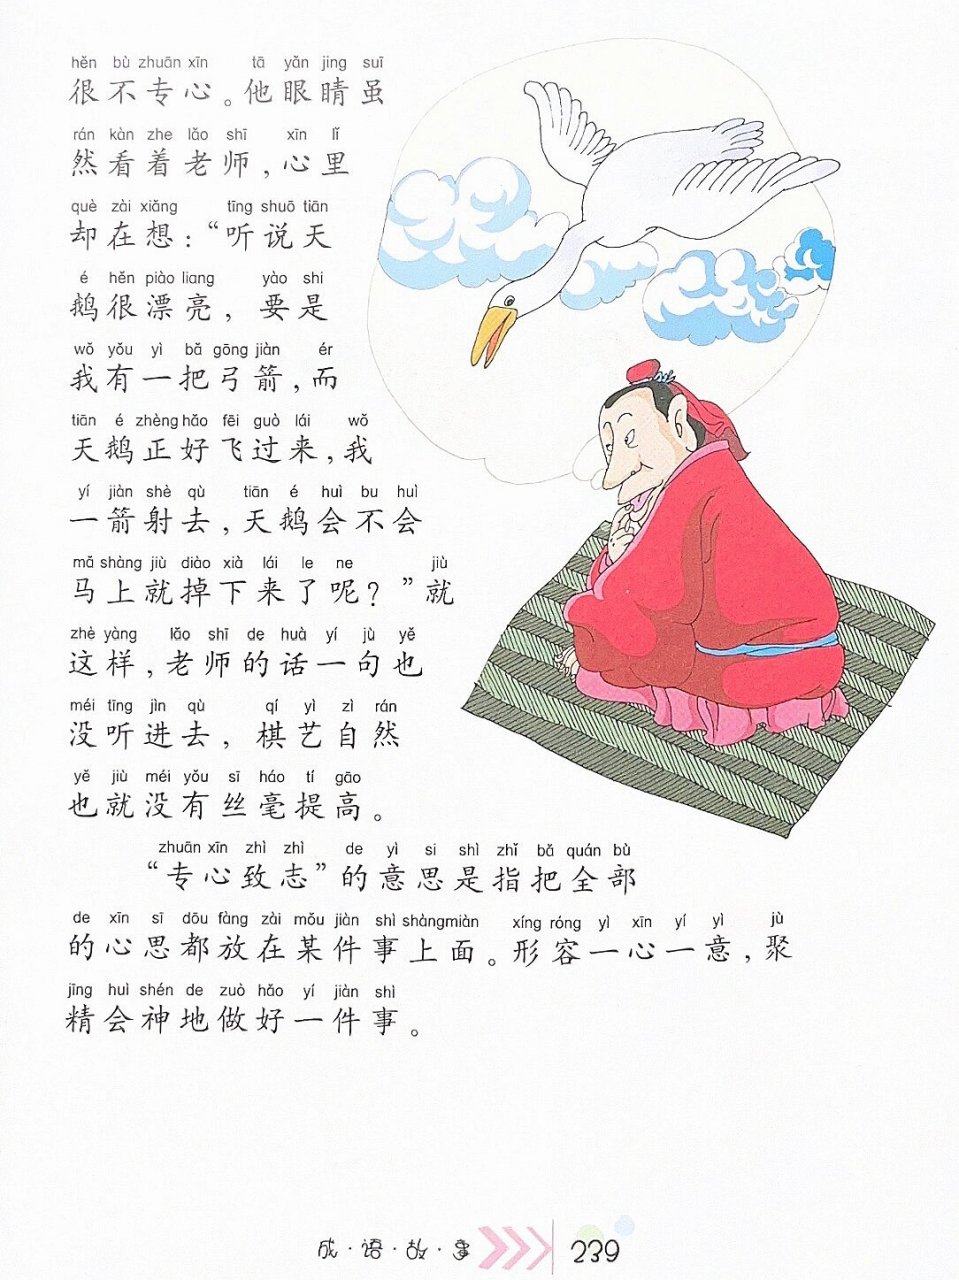 hěn bù zhuān xīn tā yǎn jing suī
很不专心。他眼睛虽
rán kàn zhe lǎo shī xīn lǐ
然看着老师,心里
què zài xiǎng tīng shuō tiān
却在想:“听说天
é hěn piào liang yào shi
鹅很漂亮,要是
wǒ yǒu yì bǎ gōng jiàn ér
我有一把弓箭,而
tiān é zhèng hǎo fēi guò lái wǒ
天鹅正好飞过来,我
yí jiàn shè qù tiān é huì bu huì
一箭射去,天鹅会不会
mǎ shàng jiù diào xià lái le ne jiù
马上就掉下来了呢?”就
zhè yàng lǎo shī de huà yí jù yě
这样,老师的话一句也
méi tīng jìn qù qí yì zì rán
没听进去,棋艺自然
yě jiù méi yǒu sī háo tí gāo
也就没有丝毫提高。
zhuān xīn zhì zhì de yì si shì zhǐ bǎ quán bù
“专心致志”的意思是指把全部
de xīn sī dōu fàng zài mǒu jiàn shì shàngmiàn xíng róng yì xīn yí yì jù
的心思都放在某件事上面。形容一心一意,聚
jīng huì shén de zuò hǎo yí jiàn shì
精会神地做好一件事。
成·语·故·事 239